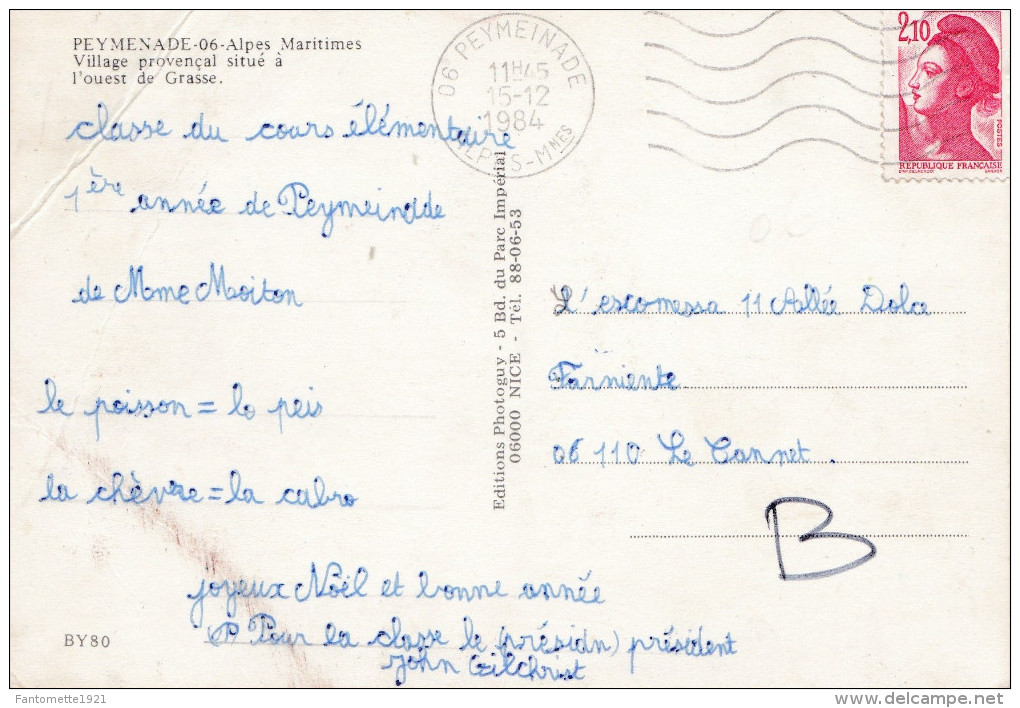 PEYMENADE-06-Alpes Maritimes
Village provençal situé à
l'ouest de Grasse.
classe du cours élémentaire
1ère année de Peymeinade
de Mme Moiton
le poisson = lo peis
la chèvre = la cabro
joyeux Noël et bonne année
P Pour la classe le (présidn) président
John Gilchrist
BY80
Fantomette1921
Editions Photoguy - 5 Bd. du Parc Impérial
06000 NICE - Tél. 88-06-53
06 PEYMEINADE
11H45
15-12
1984
ALPES-MMES
2,10
POSTES
RÉPUBLIQUE FRANÇAISE
L'escomessa 11 Allée Dolce
Farniente
06 110 Le Cannet.
B
delcampe.net